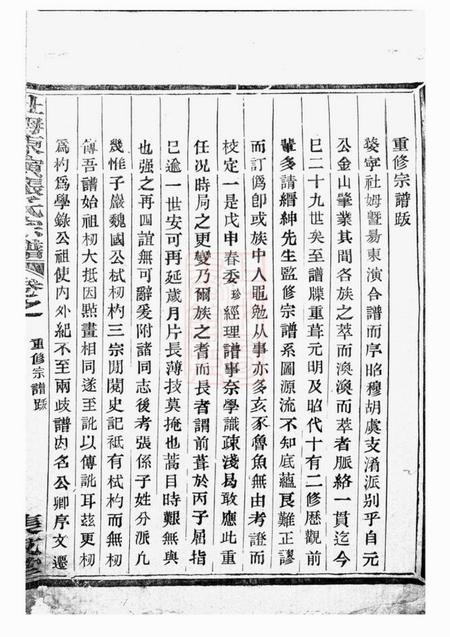 重修宗譜跋
婺寧社姆暨易東演合譜而序昭穆胡虞支淆派别乎自元
公金山肇業其間各族之萃而渙渙而萃者脈絡一貫迄今
巳二十九世矣至譜牒重葺元明及昭代十有二修歷觀前
輩多請縉紳先生監修宗譜系圖源流不知底蘊良難正謬
而訂僞即或族中人黽勉从事亦多亥豕魯魚無由考證而
校定一是戊申春委珍經理譜事奈學識疎淺曷敢應此重
任况時局之更變乃爾族之耆而長者謂前葺於丙子屈指
巳逾一世安可再延歲月片長薄技莫掩也蒿目時艱無與
也强之再四誼無可辭爰附諸同志後考張係子姓分派九
幾惟子嚴魏國公栻枬杓三宗閥閱史記祗有栻杓而無枬
傳吾譜始祖枬大抵因點畫相同遂至訛以傳訛耳茲更枬
爲杓爲學錄公祖使内外紀不至兩歧譜内名公卿序文遷
重修宗譜跋